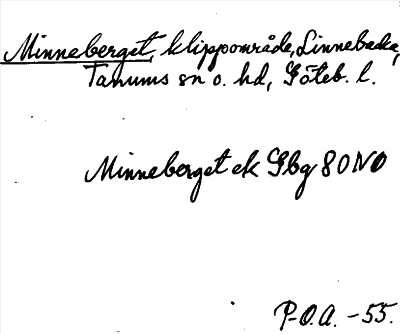 Minneberget, klippområde, Linnebacka,
Tanums sn o. hd, Göteb. l.
Minneberget ek Gbg 80 NO
P-O.A. -55.